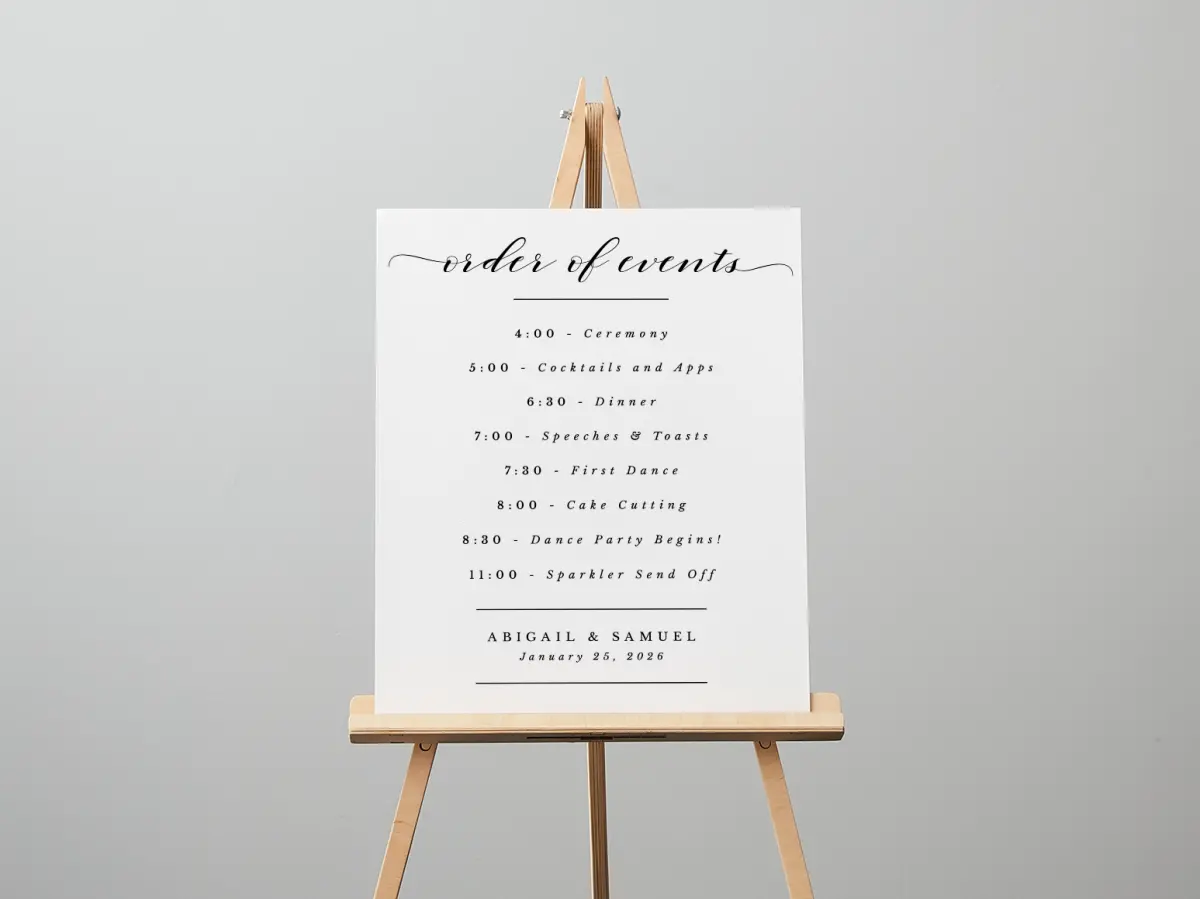 order of events
4:00 - Ceremony
5:00 - Cocktails and Apps
6:30 - Dinner
7:00 - Speeches & Toasts
7:30 - First Dance
8:00 - Cake Cutting
8:30 - Dance Party Begins!
11:00 - Sparkler Send Off
ABIGAIL & SAMUEL
January 25, 2026